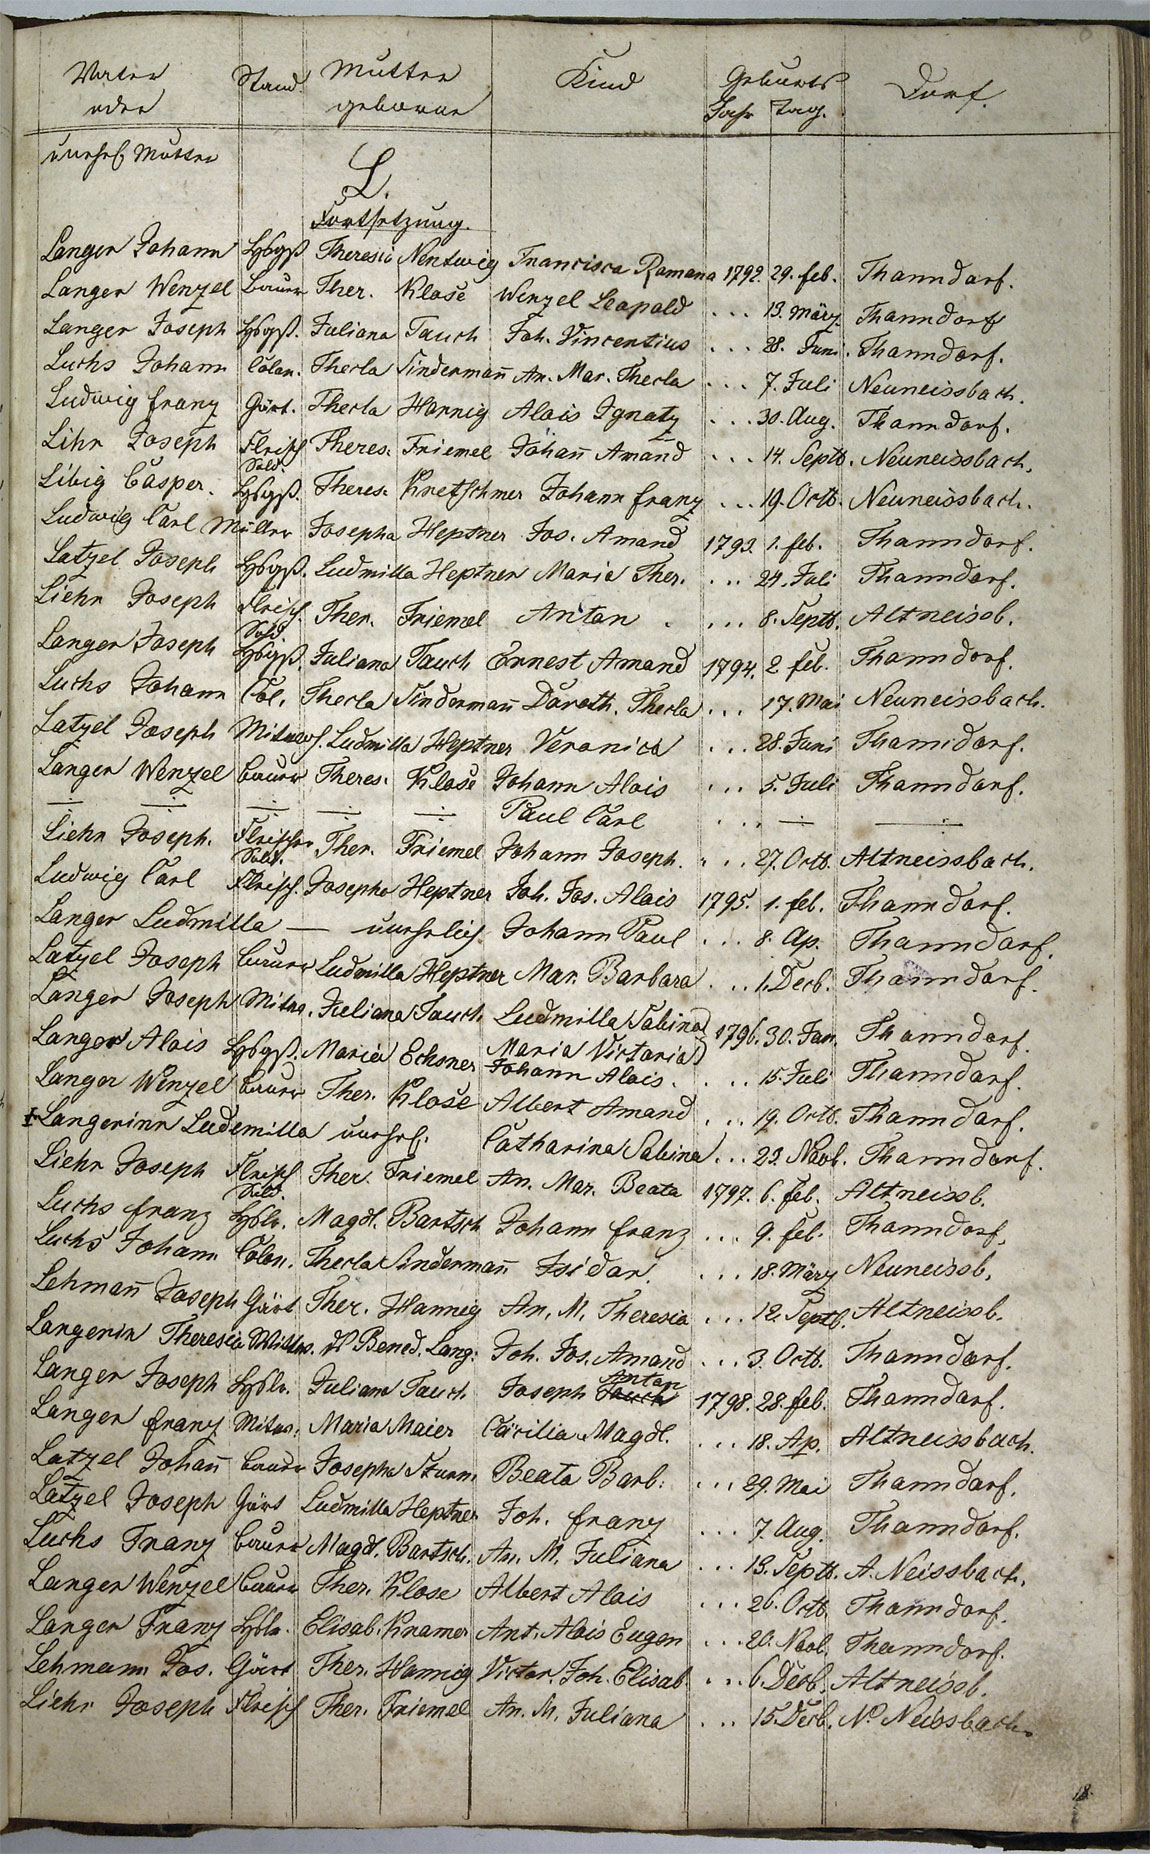 Vater Stand Mutter Kind Geburts Dorf.
oder geborne Jahr Tag.
unehel Mutter
L.
Fortsetzung.
Langer Johann Hßgß Theresia Nentwig Francisca Romana 1792. 29. feb. Thanndorf.
Langer Wenzel Bauer Ther. Klose Wenzel Leopold ... 13. März. Thanndorf
Langer Joseph Hßgß. Juliana Tauch Joh. Vincentius ... 28. Juni. Thanndorf.
Luchs Johann Colon. Thecla Lindermañ An. Mar. Thecla ... 7. Juli Neuneissbach.
Ludwig franz Gärt. Thecla Harnig Alois Ignatz ... 30. Aug. Thanndorf.
Lihr Joseph Fleisch Sold. Theres. Friemel Johañ Amand ... 14. Septb. Neuneissbach.
Libig Casper. Hßgß. Theres. Kretschmer Johann franz ... 19. Octb. Neuneissbach.
Ludwig Carl Müller Josepha Heptner Jos. Amand 1793. 1. feb. Thanndorf.
Latzel Joseph Hßgß. Ludmilla Heptner Maria Ther. ... 24. Juli Thanndorf.
Liehr Joseph Fleisch. Sold. Ther. Friemel Anton ... 8. Septb. Altneissb.
Langer Joseph Hßgß. Juliana Tauch Ernest Amand 1794. 2. feb. Thanndorf.
Luchs Johann Col. Thecla Lindermañ Doroth. Thecla ... 17. Mai Neuneissbach.
Latzel Joseph Ludmilla Heptner Veronica ... 28. Juni Thanndorf.
Langer Wenzel Bauer Theres. Klose Johann Alois ... 5. Juli Thanndorf.
Paul Carl ... —
Liehr Joseph. Fleischer Sold. Ther. Friemel Johann Joseph. ... 27. Octb. Altneissbach.
Ludwig Carl Fleisch. Josepha Heptner Joh. Jos. Alois 1795. 1. feb. Thanndorf.
Langer Ludmilla — unehelich Johann Paul ... 8. Ap. Thanndorf.
Latzel Joseph Bauer Ludmilla Heptner Mar. Barbara ... 1. Decb. Thanndorf.
Langer Joseph Mitw. Juliana Tauch Ludmilla Sabina 1796. 30. Jan. Thanndorf.
Maria Victoria
Langer Alois Hßgß. Maria Ecksner Johann Alois. ... 15. Juli Thanndorf.
Langer Wenzel Bauer Ther. Klose Albert Amand ... 19. Octb. Thanndorf.
Langerinn Ludemilla unehel. Catharina Sabina ... 23. Novb. Thanndorf.
Liehr Joseph Fleisch Sold. Ther. Friemel An. Mar. Beata 1797. 6. feb. Altneissb.
Luchs franz Hßlr. Magdl. Bartsch Johann franz ... 9. feb. Thanndorf.
Luchs Johann Colon. Thecla Lindermañ Isidor. ... 18. März Neuneissb.
Lehmañ Joseph Gärt Ther. Hannig An. M. Theresia ... 12. Septb. Altneissb.
Langerin Theresia Benod. Lang. Joh. Jos. Amand ... 3. Octb. Thanndorf.
Langer Joseph Hßlr. Juliana Tauch Joseph Anton Tauch 1798. 28. feb. Thanndorf.
Langer franz Mitw. Maria Maier Cäcilia Magdl. ... 18. Ap. Altneissbach.
Latzel Johañ Bauer Josepha Sturm Beata Barb. ... 29. Mai Thanndorf.
Latzel Joseph Gärt Ludmilla Heptner Joh. franz ... 7. Aug. Thanndorf.
Luchs Franz Bauer Magdl. Bartsch. An. M. Juliana ... 13. Septb. A. Neissbach.
Langer Wenzel Bauer Ther. Klose Albert Alois ... 26. Octb. Thanndorf.
Langer Franz Hßlr. Elisab. Kramer Ant. Alois Eugen ... 20. Novb. Thanndorf.
Lehmann Jos. Gärt Ther. Hannig Victor. Joh. Elisab ... 6. Decb. Altneissb.
Liehr Joseph Fleisch Ther. Friemel An. M. Juliana ... 15. Decb. N. Neissbach.
18.